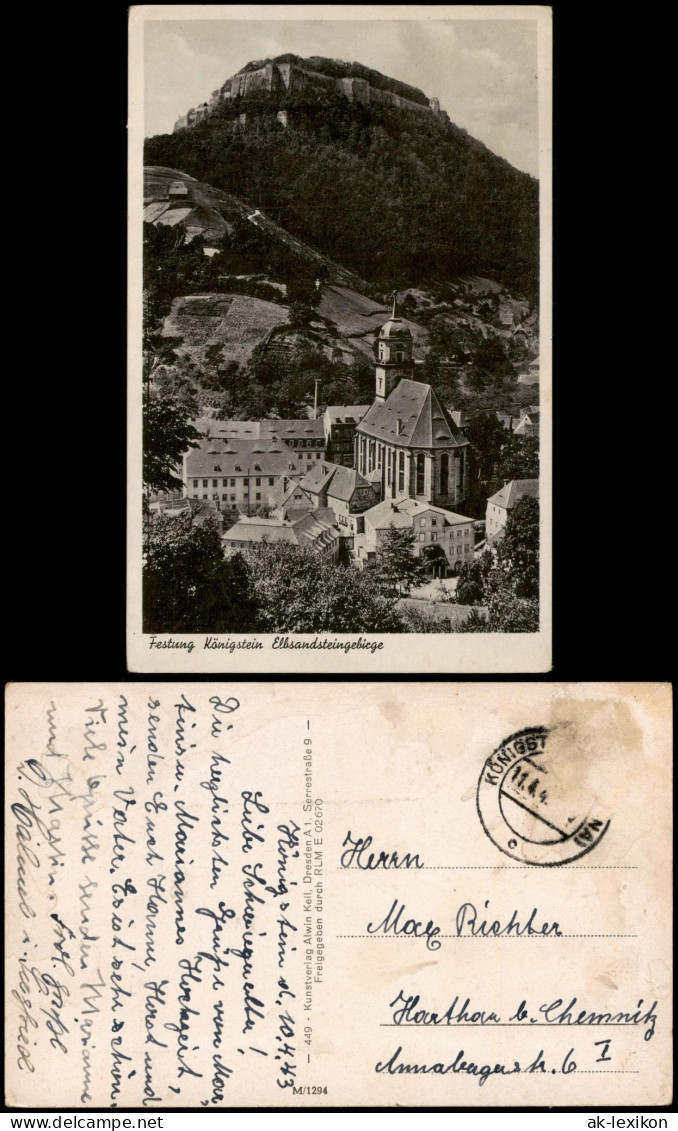 Festung Königstein Elbsandsteingebirge
Königstein d. 10.4.43
Liebe Schwiegereltern!
Die herzlichsten Grüße von
tins u. Mariannes Hochzeit,
senden Euch Hanne, Horst und
mein Vater. Es ist sehr schön.
Viele Grüsse senden Marianne
und
Helmut
— 449 - Kunstverlag Alwin Keil, Dresden A 1, Serrestraße 9 —
Freigegeben durch RLM E 02670
M/1294
KÖNIGST
11.4.4
Herrn
Max Richter
Harthau b. Chemnitz
Annabergerstr. 6 I
ak-lexikon